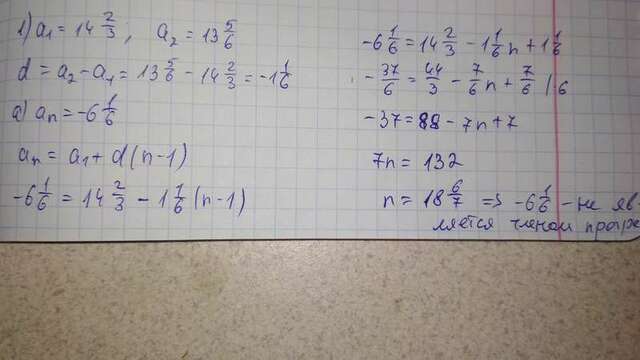 1) a₁ = 14 2/3 ; a₂ = 13 5/6
d = a₂ - a₁ = 13 5/6 - 14 2/3 = -1 1/6
a) aₙ = -6 1/6
aₙ = a₁ + d(n-1)
-6 1/6 = 14 2/3 - 1 1/6 (n-1)
-6 1/6 = 14 2/3 - 1 1/6 n + 1 1/6
- 37/6 = 44/3 - 7/6 n + 7/6 | 6
-37 = 88 - 7n + 7
7n = 132
n = 18 6/7 => -6 1/6 - не яв-
ляется членом